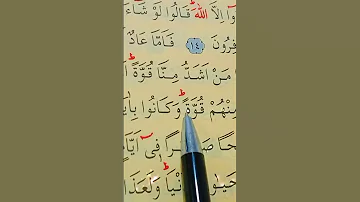 وا اِلَّا اللّٰهَ قَالُوا لَوْ شَاءَ
فِرُونَ ﴿١٤﴾ فَاَمَّا عَادٌ
مَنْ اَشَدُّ مِنَّا قُوَّةً
مِنْهُمْ قُوَّةً وَكَانُوا بِاٰيَا
حًا صَرًا فِى اَيَّا
نْيَا وَلَعَذَا